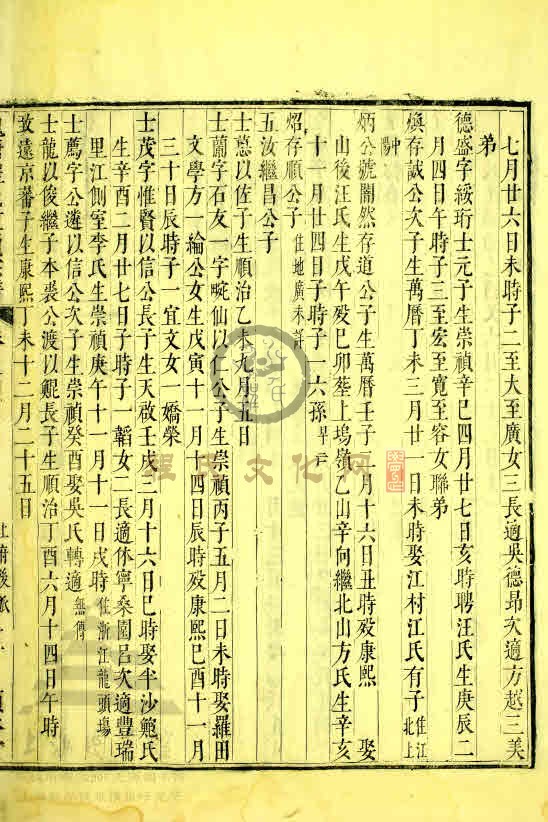 七月廿六日未時子二至大至廣女三長適吳德昻次適方越三美
弟
德盛字綏珩士元子生崇禎辛巳四月廿七日亥時聘汪氏生庚辰二
月四日午時子三至宏至寛至容女聯弟
煥存誠公次子生萬曆丁未三月廿一日未時娶江村江氏有子住江北上
炳公號闇然存道公子生萬曆壬子二月十六日丑時殁康熙 娶
山後汪氏生戊午殁巳卯塟上塢嶺乙山辛向繼北山方氏生辛亥
十一月廿四日子時子一六孫早亡
炤存順公子住地廣未詳
五汝繼昌公子
士慤以佐子生順治乙未九月五日
士蘭字石友一字畹仙以 公子生崇禎丙子五月二日未時娶羅田
文學方一綸公女生戊寅十一月十四日辰時殁康熙巳酉十一月
三十日辰時子一宜文女一嬌榮
士茂字惟賢以信公長子生天啟壬戌三月十六日巳時娶半沙鮑氏
生辛酉二月廿七日子時子一韜女二長適休寧桑園呂次適豐瑞
里江側室李氏生崇禎庚午十一月十一日戌時住浙江龍頭塲
士薦字公遴以信公次子生崇禎癸酉娶吳氏轉適無傳
士龍以俊繼子本裘公渡以鯤長子生順治丁酉六月十四日午時
致遠京蕃子生康熙丁未十二月二十五日
程氏文化网